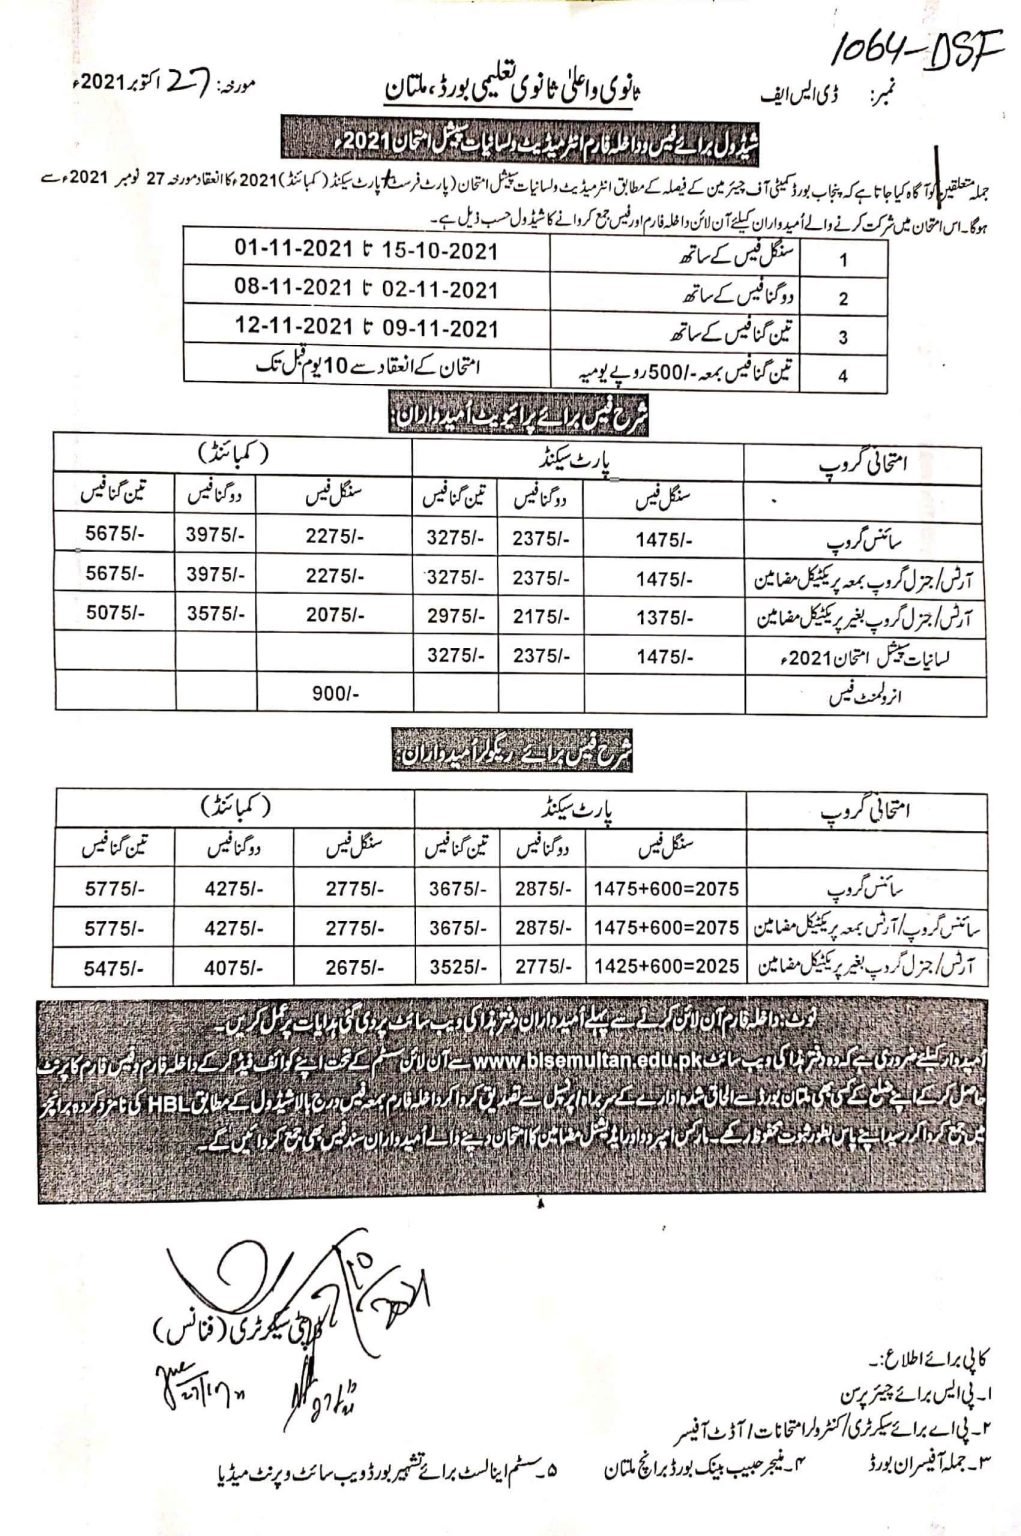 1064-DSF
نمبر: ڈی ایس ایف
ثانوی و اعلیٰ ثانوی تعلیمی بورڈ، ملتان
مورخہ: 27 اکتوبر 2021ء
شیڈول برائے فیس و داخلہ فارم انٹرمیڈیٹ و لسانیات سپیشل امتحان 2021ء
جملہ متعلقین کو آگاہ کیا جاتا ہے کہ پنجاب بورڈ کمیٹی آف چیئرمین کے فیصلہ کے مطابق انٹرمیڈیٹ و لسانیات سپیشل امتحان (پارٹ فرسٹ+پارٹ سیکنڈ (کمبائنڈ) 2021ء کا انعقاد مورخہ 27 نومبر 2021ء سے
ہوگا۔ اس امتحان میں شرکت کرنے والے اُمیدواران کیلئے آن لائن داخلہ فارم اور فیس جمع کروانے کا شیڈول حسب ذیل ہے۔
1 سنگل فیس کے ساتھ 15-10-2021 تا 01-11-2021
2 دوگنا فیس کے ساتھ 02-11-2021 تا 08-11-2021
3 تین گنا فیس کے ساتھ 09-11-2021 تا 12-11-2021
4 تین گنا فیس بمعہ -/500 روپے یومیہ امتحان کے انعقاد سے 10 یوم قبل تک
شرح فیس برائے پرائیویٹ اُمیدواران:
امتحانی گروپ پارٹ سیکنڈ (کمبائنڈ)
سنگل فیس دوگنا فیس تین گنا فیس سنگل فیس دوگنا فیس تین گنا فیس
سائنس گروپ 1475/- 2375/- 3275/- 2275/- 3975/- 5675/-
آرٹس/جنرل گروپ بمعہ پریکٹیکل مضامین 1475/- 2375/- 3275/- 2275/- 3975/- 5675/-
آرٹس/جنرل گروپ بغیر پریکٹیکل مضامین 1375/- 2175/- 2975/- 2075/- 3575/- 5075/-
لسانیات سپیشل امتحان 2021ء 1475/- 2375/- 3275/-
انرولمنٹ فیس 900/-
شرح فیس برائے ریگولر اُمیدواران:
امتحانی گروپ پارٹ سیکنڈ (کمبائنڈ)
سنگل فیس دوگنا فیس تین گنا فیس سنگل فیس دوگنا فیس تین گنا فیس
سائنس گروپ 1475+600=2075 2875/- 3675/- 2775/- 4275/- 5775/-
سائنس گروپ/آرٹس بمعہ پریکٹیکل مضامین 1475+600=2075 2875/- 3675/- 2775/- 4275/- 5775/-
آرٹس/جنرل گروپ بغیر پریکٹیکل مضامین 1425+600=2025 2775/- 3525/- 2675/- 4075/- 5475/-
نوٹ: داخلہ فارم آن لائن کرنے سے پہلے اُمیدواران دفتر ہذا کی ویب سائٹ پر دی گئی ہدایات پر عمل کریں۔
اُمیدوار کیلئے ضروری ہے کہ وہ دفتر ہذا کی ویب سائٹ www.bisemultan.edu.pk سے آن لائن سسٹم کے تحت اپنے کوائف فیڈ کر کے داخلہ فارم و فیس فارم کا پرنٹ
حاصل کر کے اپنے ضلع کے کسی بھی ملتان بورڈ سے الحاق شدہ ادارے کے سربراہ/پرنسپل سے تصدیق کروا کر داخلہ فارم بمعہ فیس درج بالا شیڈول کے مطابق HBL کی نامزد کردہ برانچز
میں جمع کروا کر رسید اپنے پاس بطور ثبوت محفوظ رکھے۔ مارکس امپروو اور ایڈیشنل مضامین کا امتحان دینے والے اُمیدواران سند فیس بھی جمع کروائیں گے۔
ڈپٹی سیکرٹری (فنانس)
کاپی برائے اطلاع:۔
۱۔ پی ایس برائے چیئرپرسن
۲۔ پی اے برائے سیکرٹری/کنٹرولر امتحانات/آڈٹ آفیسر
۳۔ جملہ آفیسران بورڈ ۴۔ منیجر حبیب بینک بورڈ برانچ ملتان ۵۔ سسٹم اینالسٹ برائے تشہیر بورڈ ویب سائٹ و پرنٹ میڈیا